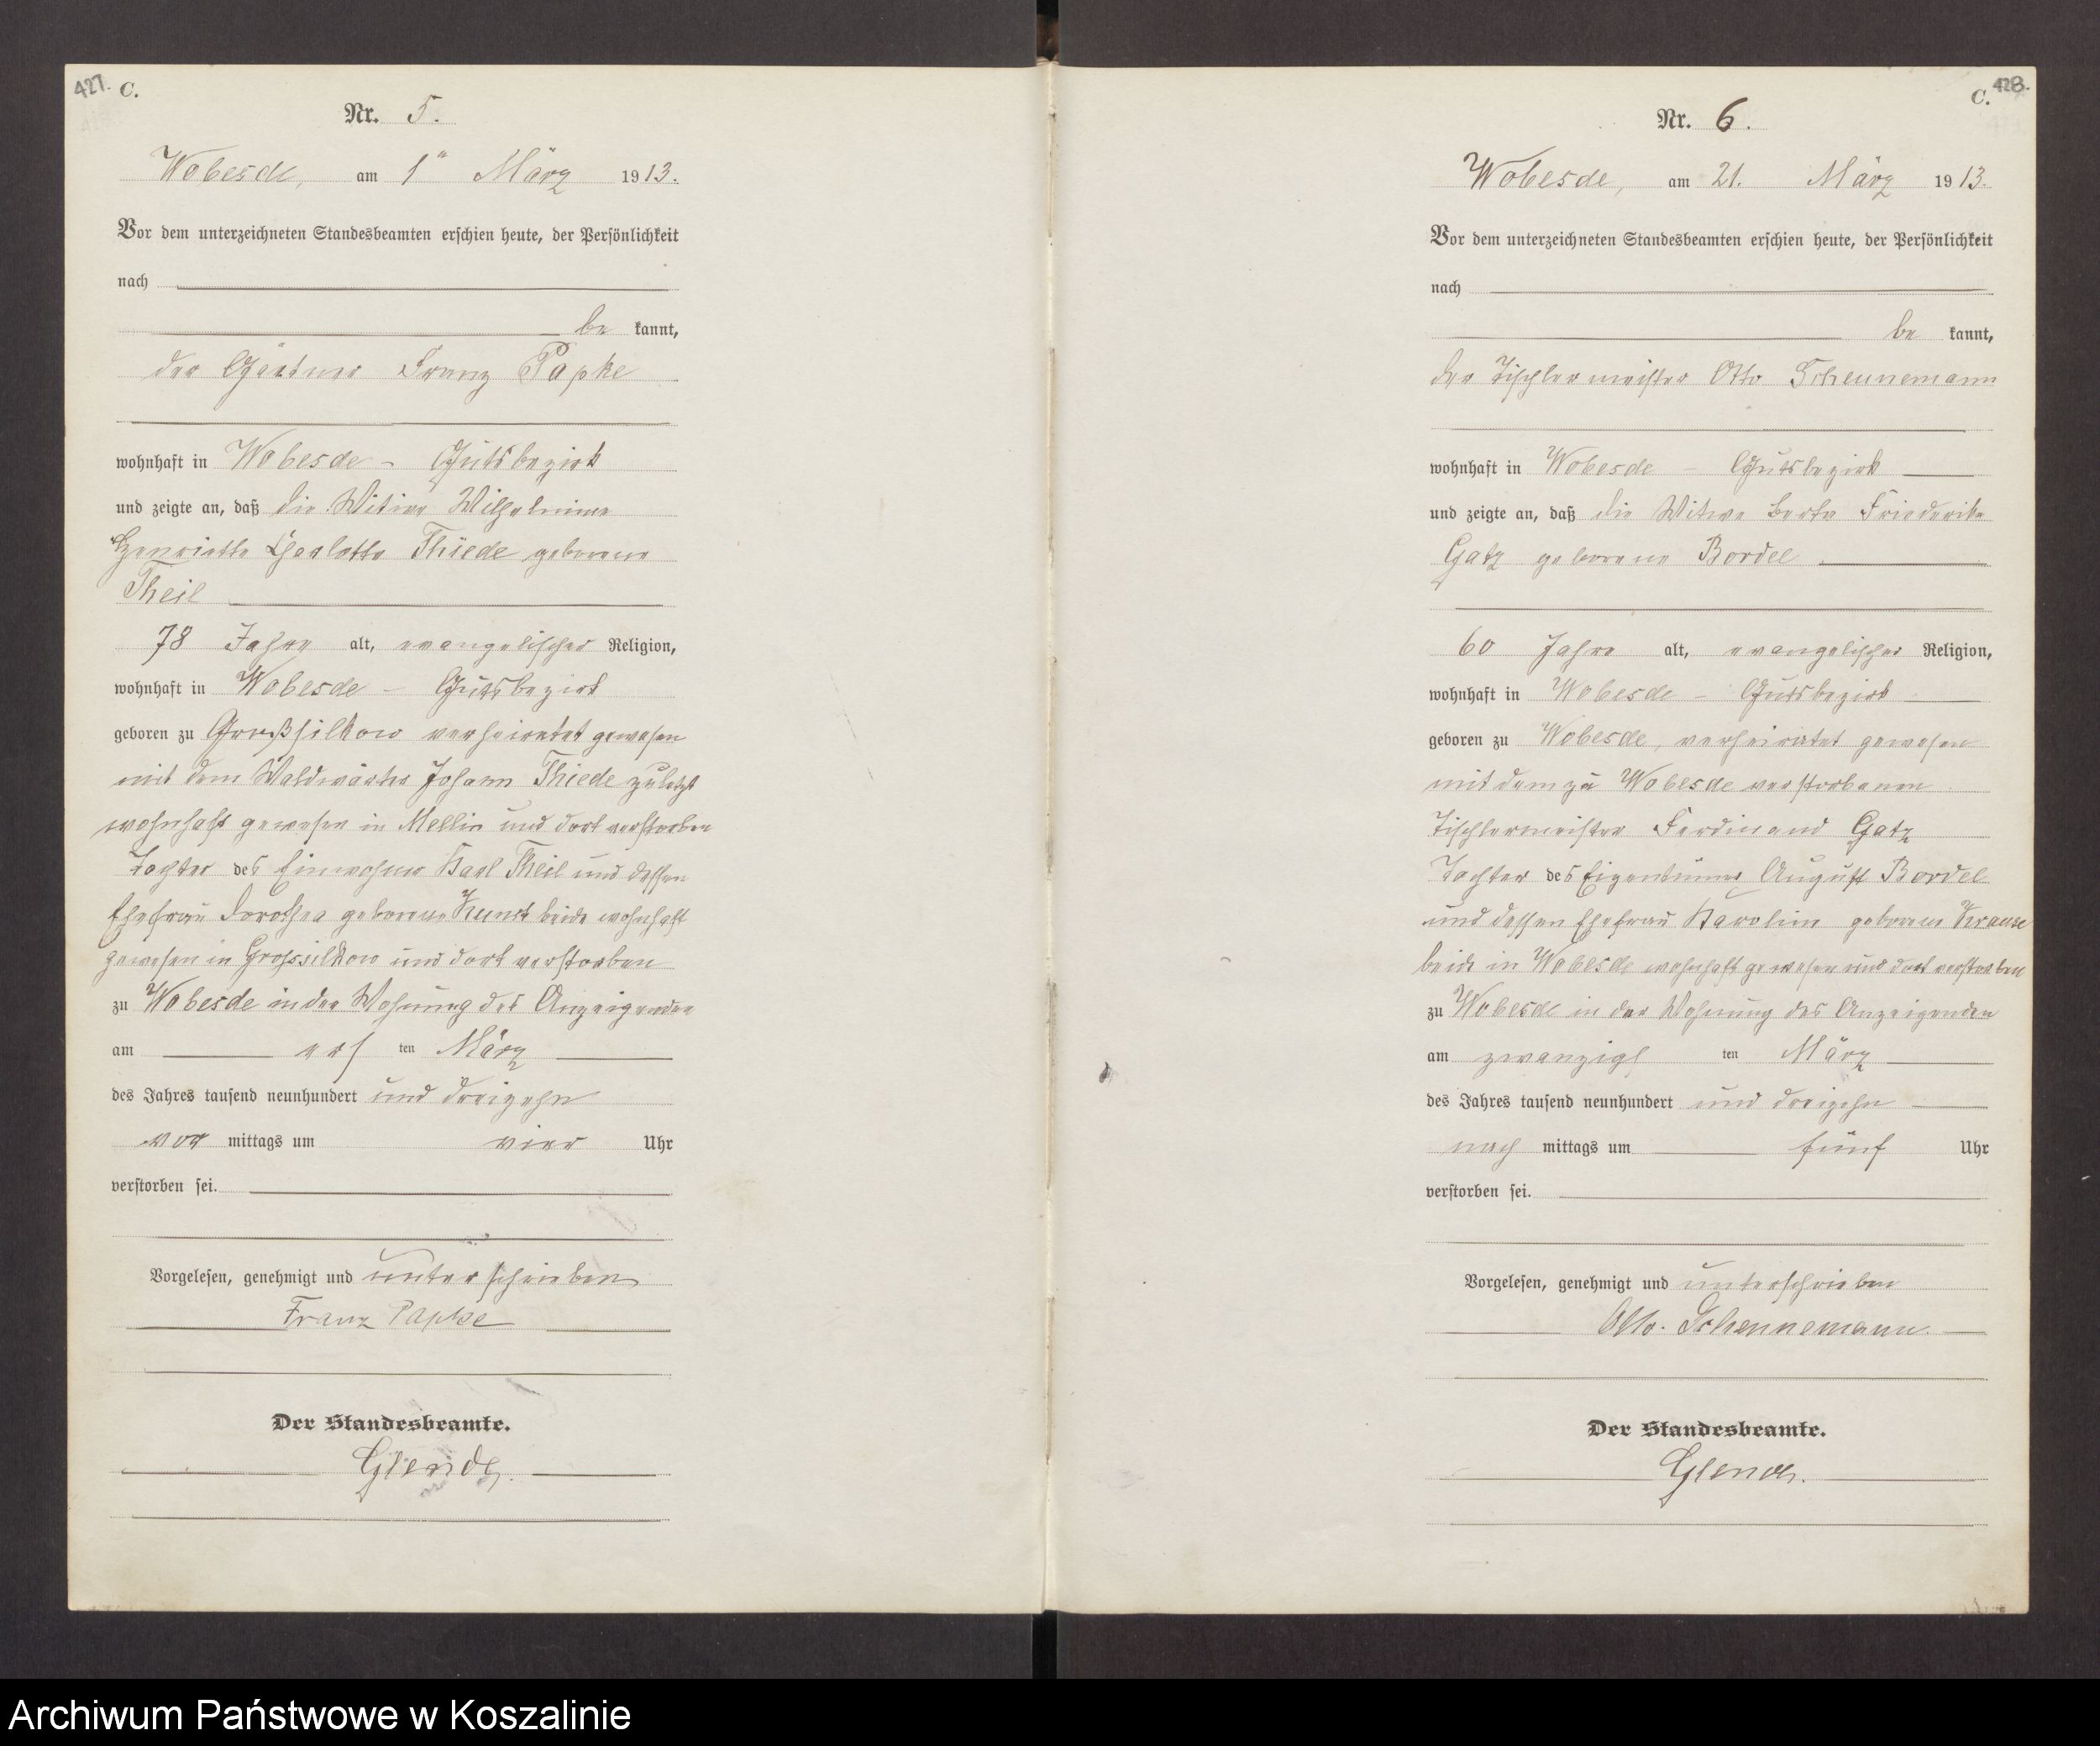 427. C.
Nr. 5.
Wobesde, am 1ⁿ März 1913.
Vor dem unterzeichneten Standesbeamten erschien heute, der Persönlichkeit
nach
be kannt,
der Gärtner Franz Papke
wohnhaft in Wobesde – Gutsbezirk
und zeigte an, daß die Witwe Wilhelmine
Henriette Charlotte Thiede geborene
Theil
78 Jahre alt, evangelischer Religion,
wohnhaft in Wobesde – Gutsbezirk
geboren zu Großsilkow verheiratet gewesen
mit dem Waldwärter Johann Thiede zuletzt
wohnhaft gewesen in Mellin und dort verstorben
Tochter des Einwohner Karl Theil und dessen
Ehefrau Dorothea geborene Kunst beide wohnhaft
gewesen in Grossilkow und dort verstorben
zu Wobesde in der Wohnung des Anzeigenden
am ersten März
des Jahres tausend neunhundert und dreizehn
vor mittags um vier Uhr
verstorben sei.
Vorgelesen, genehmigt und unterschrieben
Franz Papke
Der Standesbeamte.
428. C.
Nr. 6.
Wobesde, am 21. März 1913.
Vor dem unterzeichneten Standesbeamten erschien heute, der Persönlichkeit
nach
be kannt,
der Tischlermeister Otto Scheunemann
wohnhaft in Wobesde – Gutsbezirk
und zeigte an, daß die Witwe Berta Friederike
Gatz geborene Bordel
60 Jahre alt, evangelischer Religion,
wohnhaft in Wobesde – Gutsbezirk
geboren zu Wobesde, verheiratet gewesen
mit dem zu Wobesde verstorbenen
Tischlermeister Ferdinand Gatz
Tochter des Eigentümer August Bordel
und dessen Ehefrau Karoline geborene Krause
beide in Wobesde wohnhaft gewesen und dort verstorben
zu Wobesde in der Wohnung des Anzeigenden
am zwanzigsten März
des Jahres tausend neunhundert und dreizehn
nach mittags um fünf Uhr
verstorben sei.
Vorgelesen, genehmigt und unterschrieben
Otto. Scheunemann.
Der Standesbeamte.
Archiwum Państwowe w Koszalinie